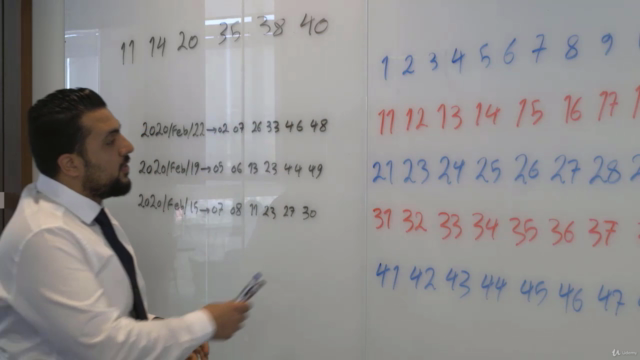 11 14 20 35 38 40
2020/Feb/22→02 07 26 33 46 48
2020/Feb/19→05 06 13 23 44 49
2020/Feb/15→07 08 11 23 27 30
1 2 3 4 5 6 7 8 9
11 12 13 14 15 16 17
21 23 24 25 26 27 28
31 32 33 34 35 36 37
41 42 43 44 45 46 47